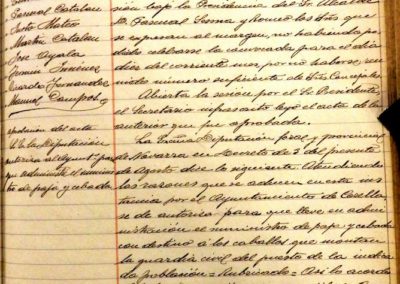 Pascual Catalan
Justo Mateo
Martin Catalan
José Ayala
Fermin Jimenez
Ricardo Fernandez
Manuel Campos
aprobacion del acta
sión bajo la Presidencia del Sr. Alcalde
D. Pascual Serna y Romeo los Sres que
se expresan al margen, no habiendo po
dido celebrarse la convocada para el dia
dies del corriente mes, por no haberse reu
nido número suficiente de Sres Concejales
Abierta la sesión por el Sr Presidente,
el Secretario infrascrito leyó el acta de la
anterior que fue aprobada.
La Excma Diputación foral y provincial
de Navarra en decreto de 3 del presente
de Agosto dice lo siguiente. Atendiendo
las razones que se aducen en esta ins
tancia por el Ayuntamiento de
se le autoriza para que lleve en admi
nistración el suministro de paja y cebada
con destino á los caballos que montan
la guardia civil del puesto de la indica
da población = Asi lo acordó